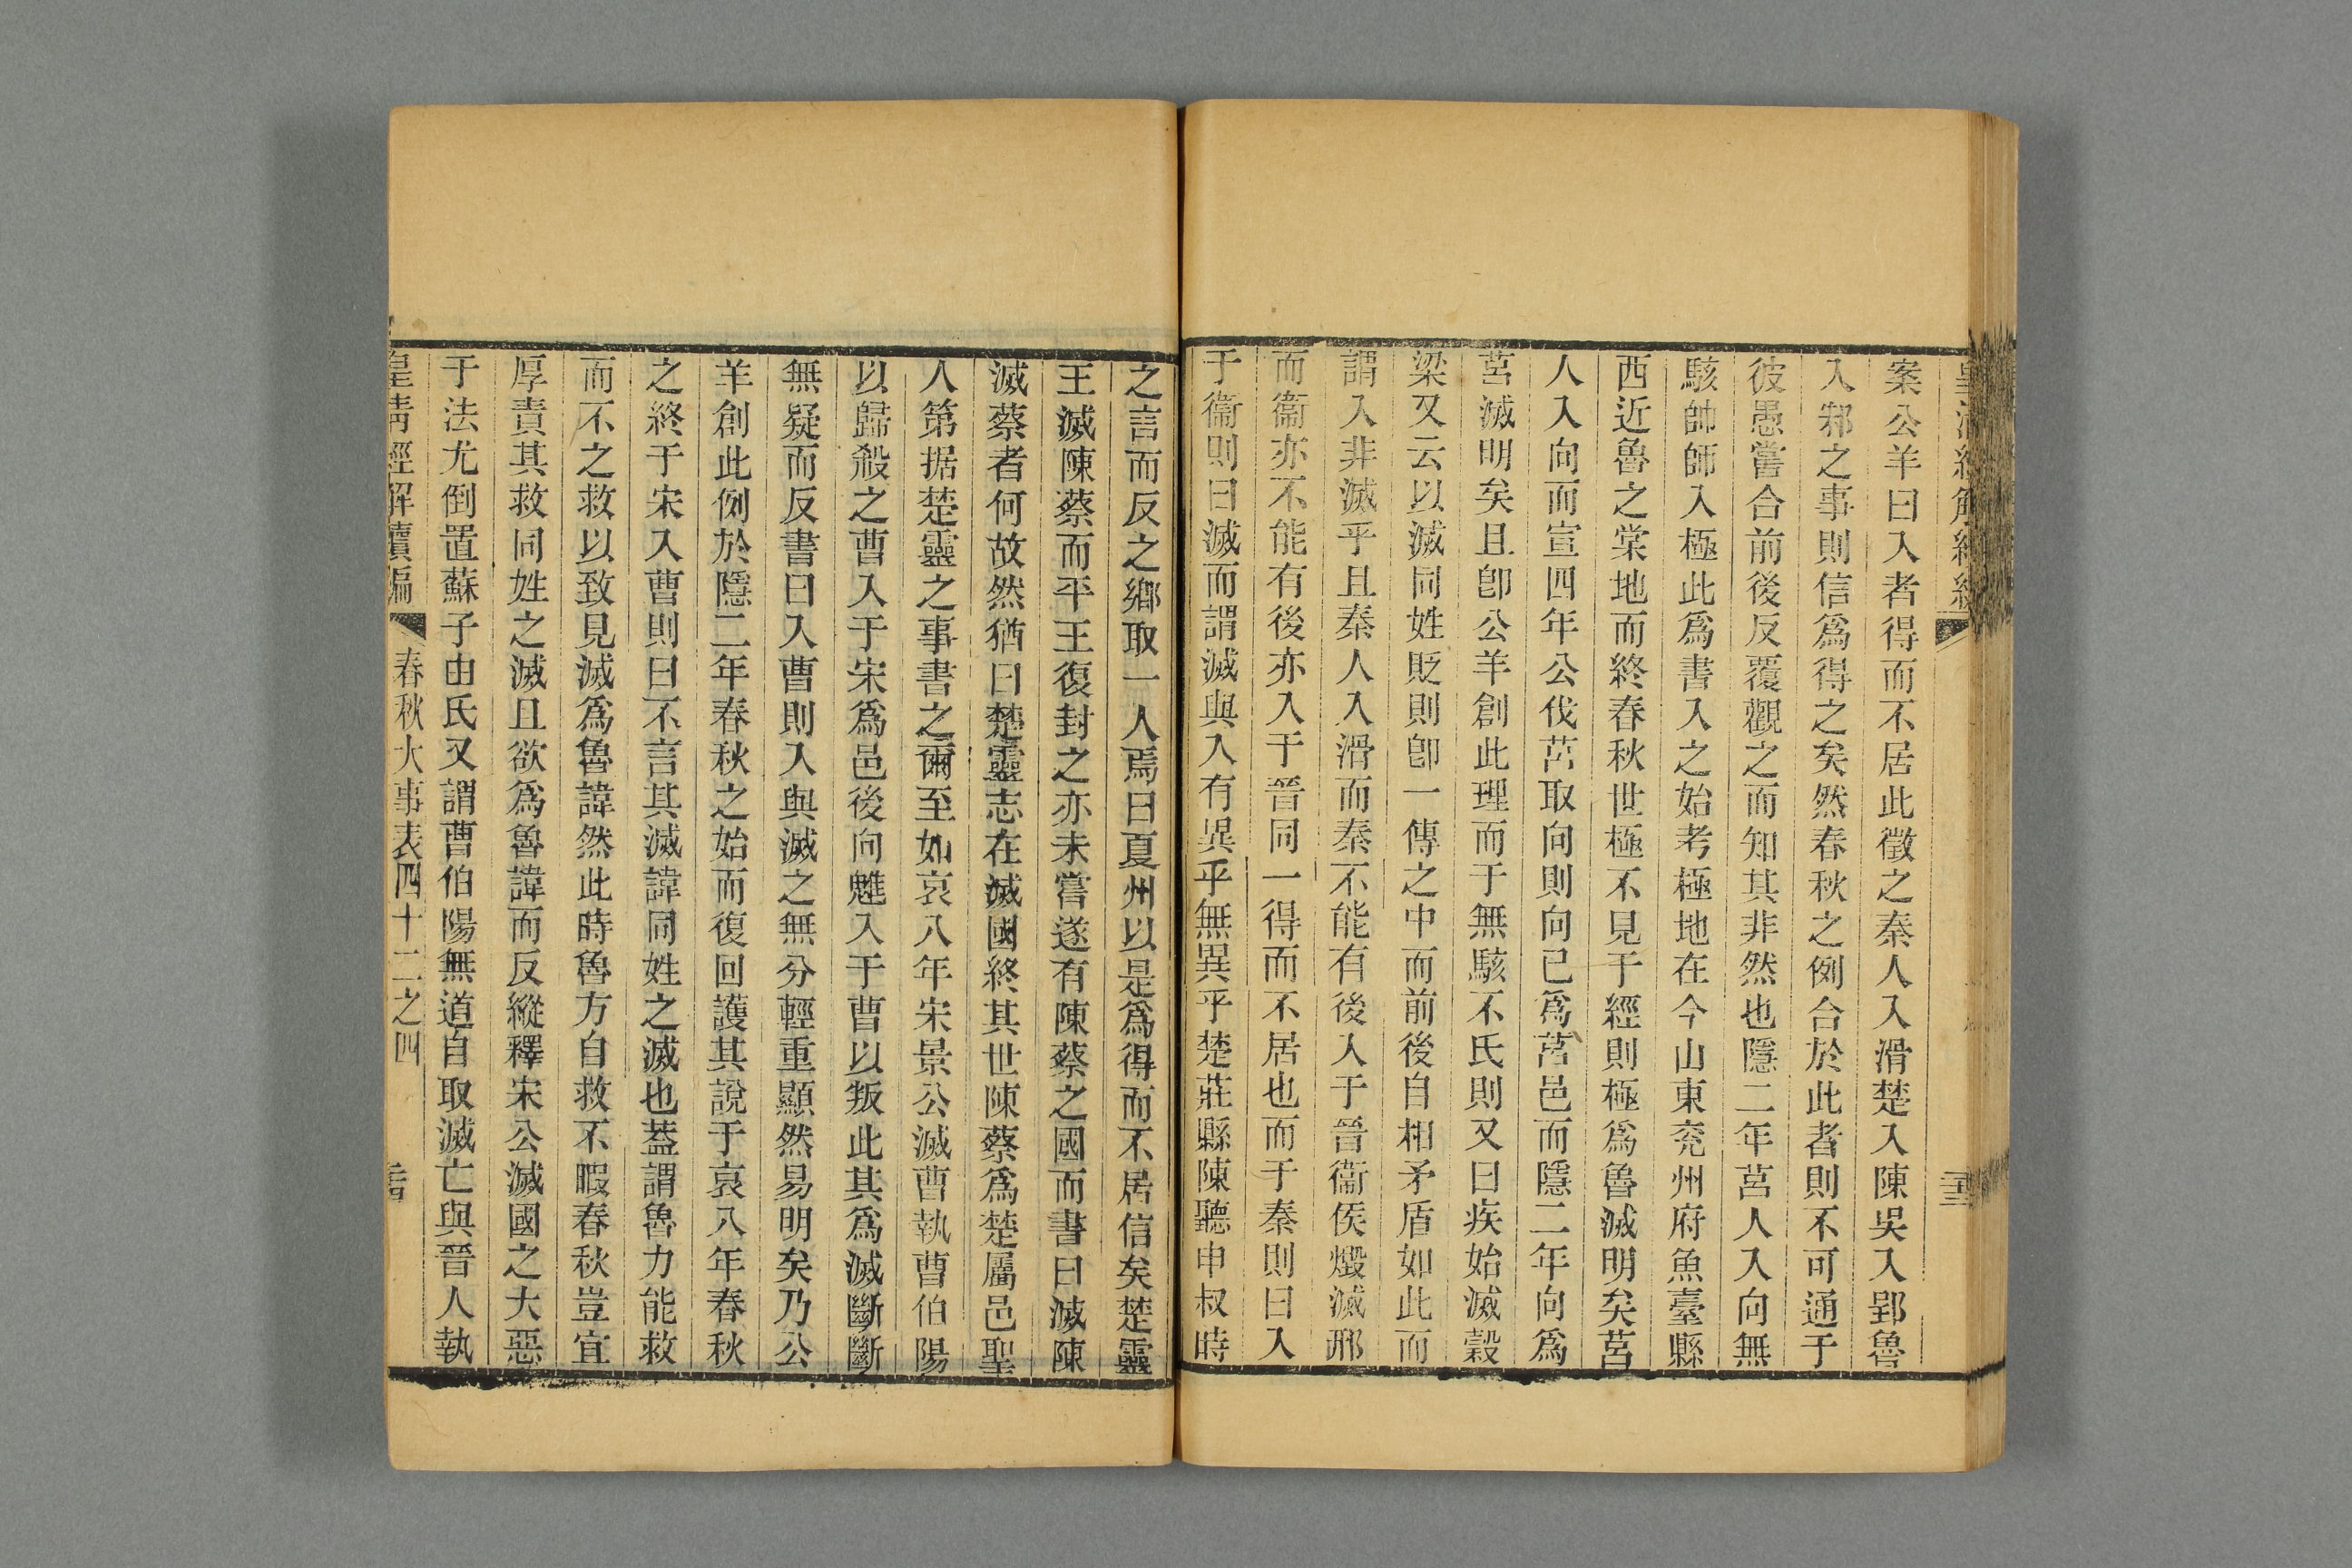 案公羊曰入者得而不居此徵之秦人入滑楚入陳吳入郢魯
入邾之事則信爲得之矣然春秋之例合於此者則不可通于
彼愚嘗合前後反覆觀之而知其非然也隱二年莒人入向無
駭帥師入極此爲書入之始考極地在今山東兖州府魚臺縣
西近魯之棠地而終春秋世極不見于經則極爲魯滅明矣莒
人入向而宣四年公伐莒取向則向已爲莒邑而隱二年向爲
莒滅明矣且卽公羊創此理而于無駭不氏則又曰疾始滅穀
梁又云以滅同姓貶則卽一傳之中而前後自相矛盾如此而
謂入非滅乎且秦人入滑而秦不能有後入于晉衞侯燬滅邢
而衞亦不能有後亦入于晉同一得而不居也而于秦則曰入
于衞則曰滅而謂滅與入有異乎無異乎楚莊縣陳聽申叔時
之言而反之鄉取一人焉曰夏州以是爲得而不居信矣楚靈
王滅陳蔡而平王復封之亦未嘗遂有陳蔡之國而書曰滅陳
滅蔡者何故然猶曰楚靈志在滅國終其世陳蔡爲楚屬邑聖
人第据楚靈之事書之爾至如哀八年宋景公滅曹執曹伯陽
以歸殺之曹入于宋爲邑後向魋入于曹以叛此其爲滅斷斷
無疑而反書曰入曹則入與滅之無分輕重顯然易明矣乃公
羊創此例於隱二年春秋之始而復回護其說于哀八年春秋
之終于宋入曹則曰不言其滅諱同姓之滅也蓋謂魯力能救
而不之救以致見滅爲魯諱然此時魯方自救不暇春秋豈宜
厚責其救同姓之滅且欲爲魯諱而反縱釋宋公滅國之大惡
于法尤倒置蘇子由氏又謂曹伯陽無道自取滅亡與晉人執
皇清經解續編
春秋大事表四十二之四